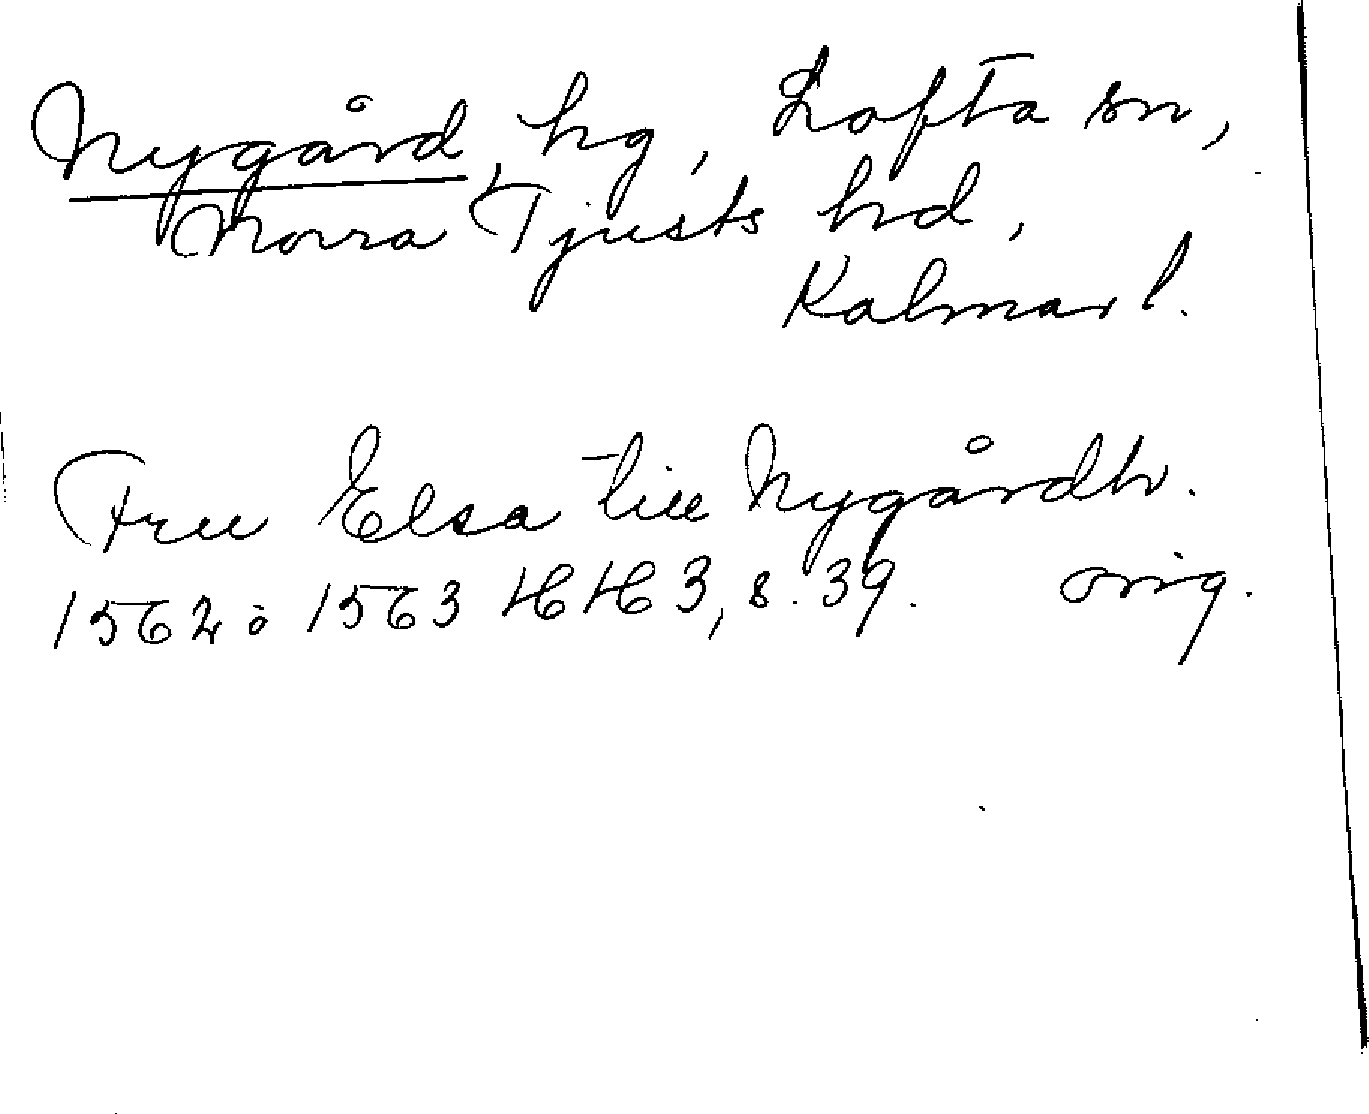 Nygård, hg, Lofta sn,
Norra Tjusts hd,
Kalmar l.
Fru Elsa till Nygårdh.
1562 ö 1563 HH 3, s. 39. orig.